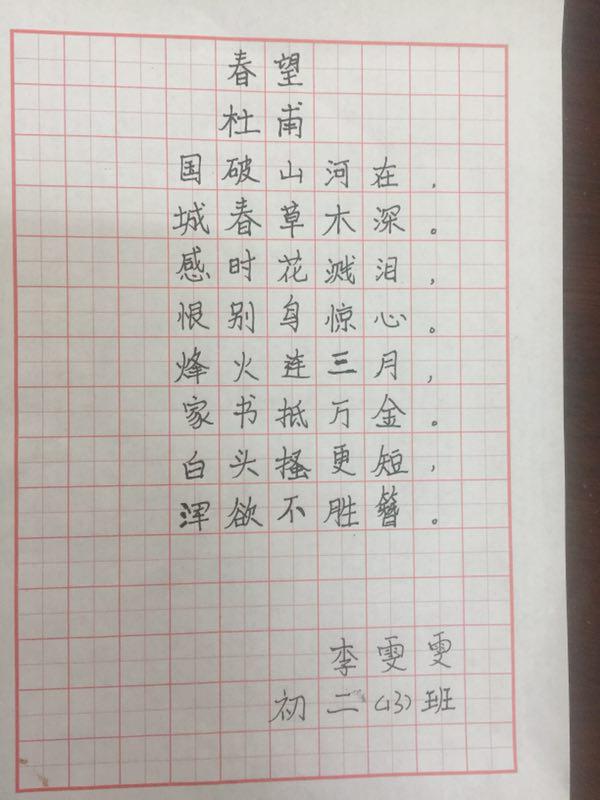 春望
杜甫
国破山河在，
城春草木深。
感时花溅泪，
恨别身惊心。
烽火连三月，
家书抵万金。
白头搔更短，
浑欲不胜簪。
李雯雯
初二(13)班